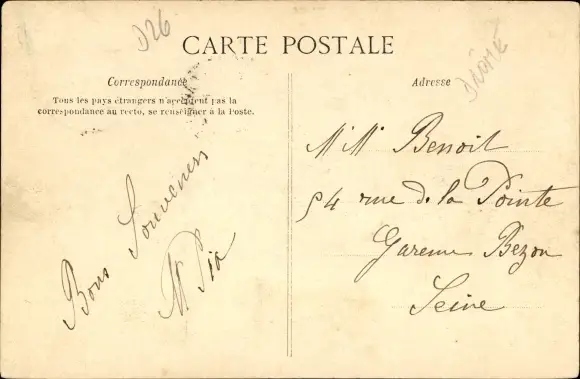 D26
CARTE POSTALE
DRÔME
Correspondance
Tous les pays étrangers n'acceptent pas la
correspondance au recto, se renseigner à la Poste.
Adresse
Bons Souvenirs
M Benoit
54 rue de la Pointe
Garenne Bezon
Seine